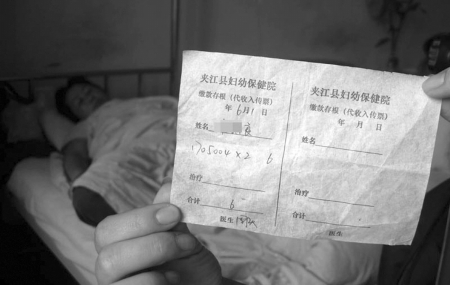 夹江县妇幼保健院
缴款存根（代收入传票）
年 6月1日
姓名
1705004×2 6
治疗
合计 6
医生
夹江县妇幼保健院
缴款存根（代收入传票）
年 月 日
姓名
治疗
合计
医生